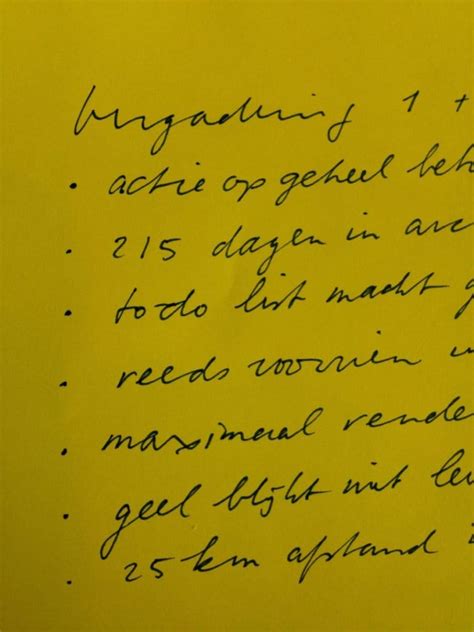 vergadering 1 +
• actie op geheel beh
• 215 dagen in arc
• todo list macht g
• reeds voorzien
• maximaal rende
• geel blijkt niet le
• 25 km afstand